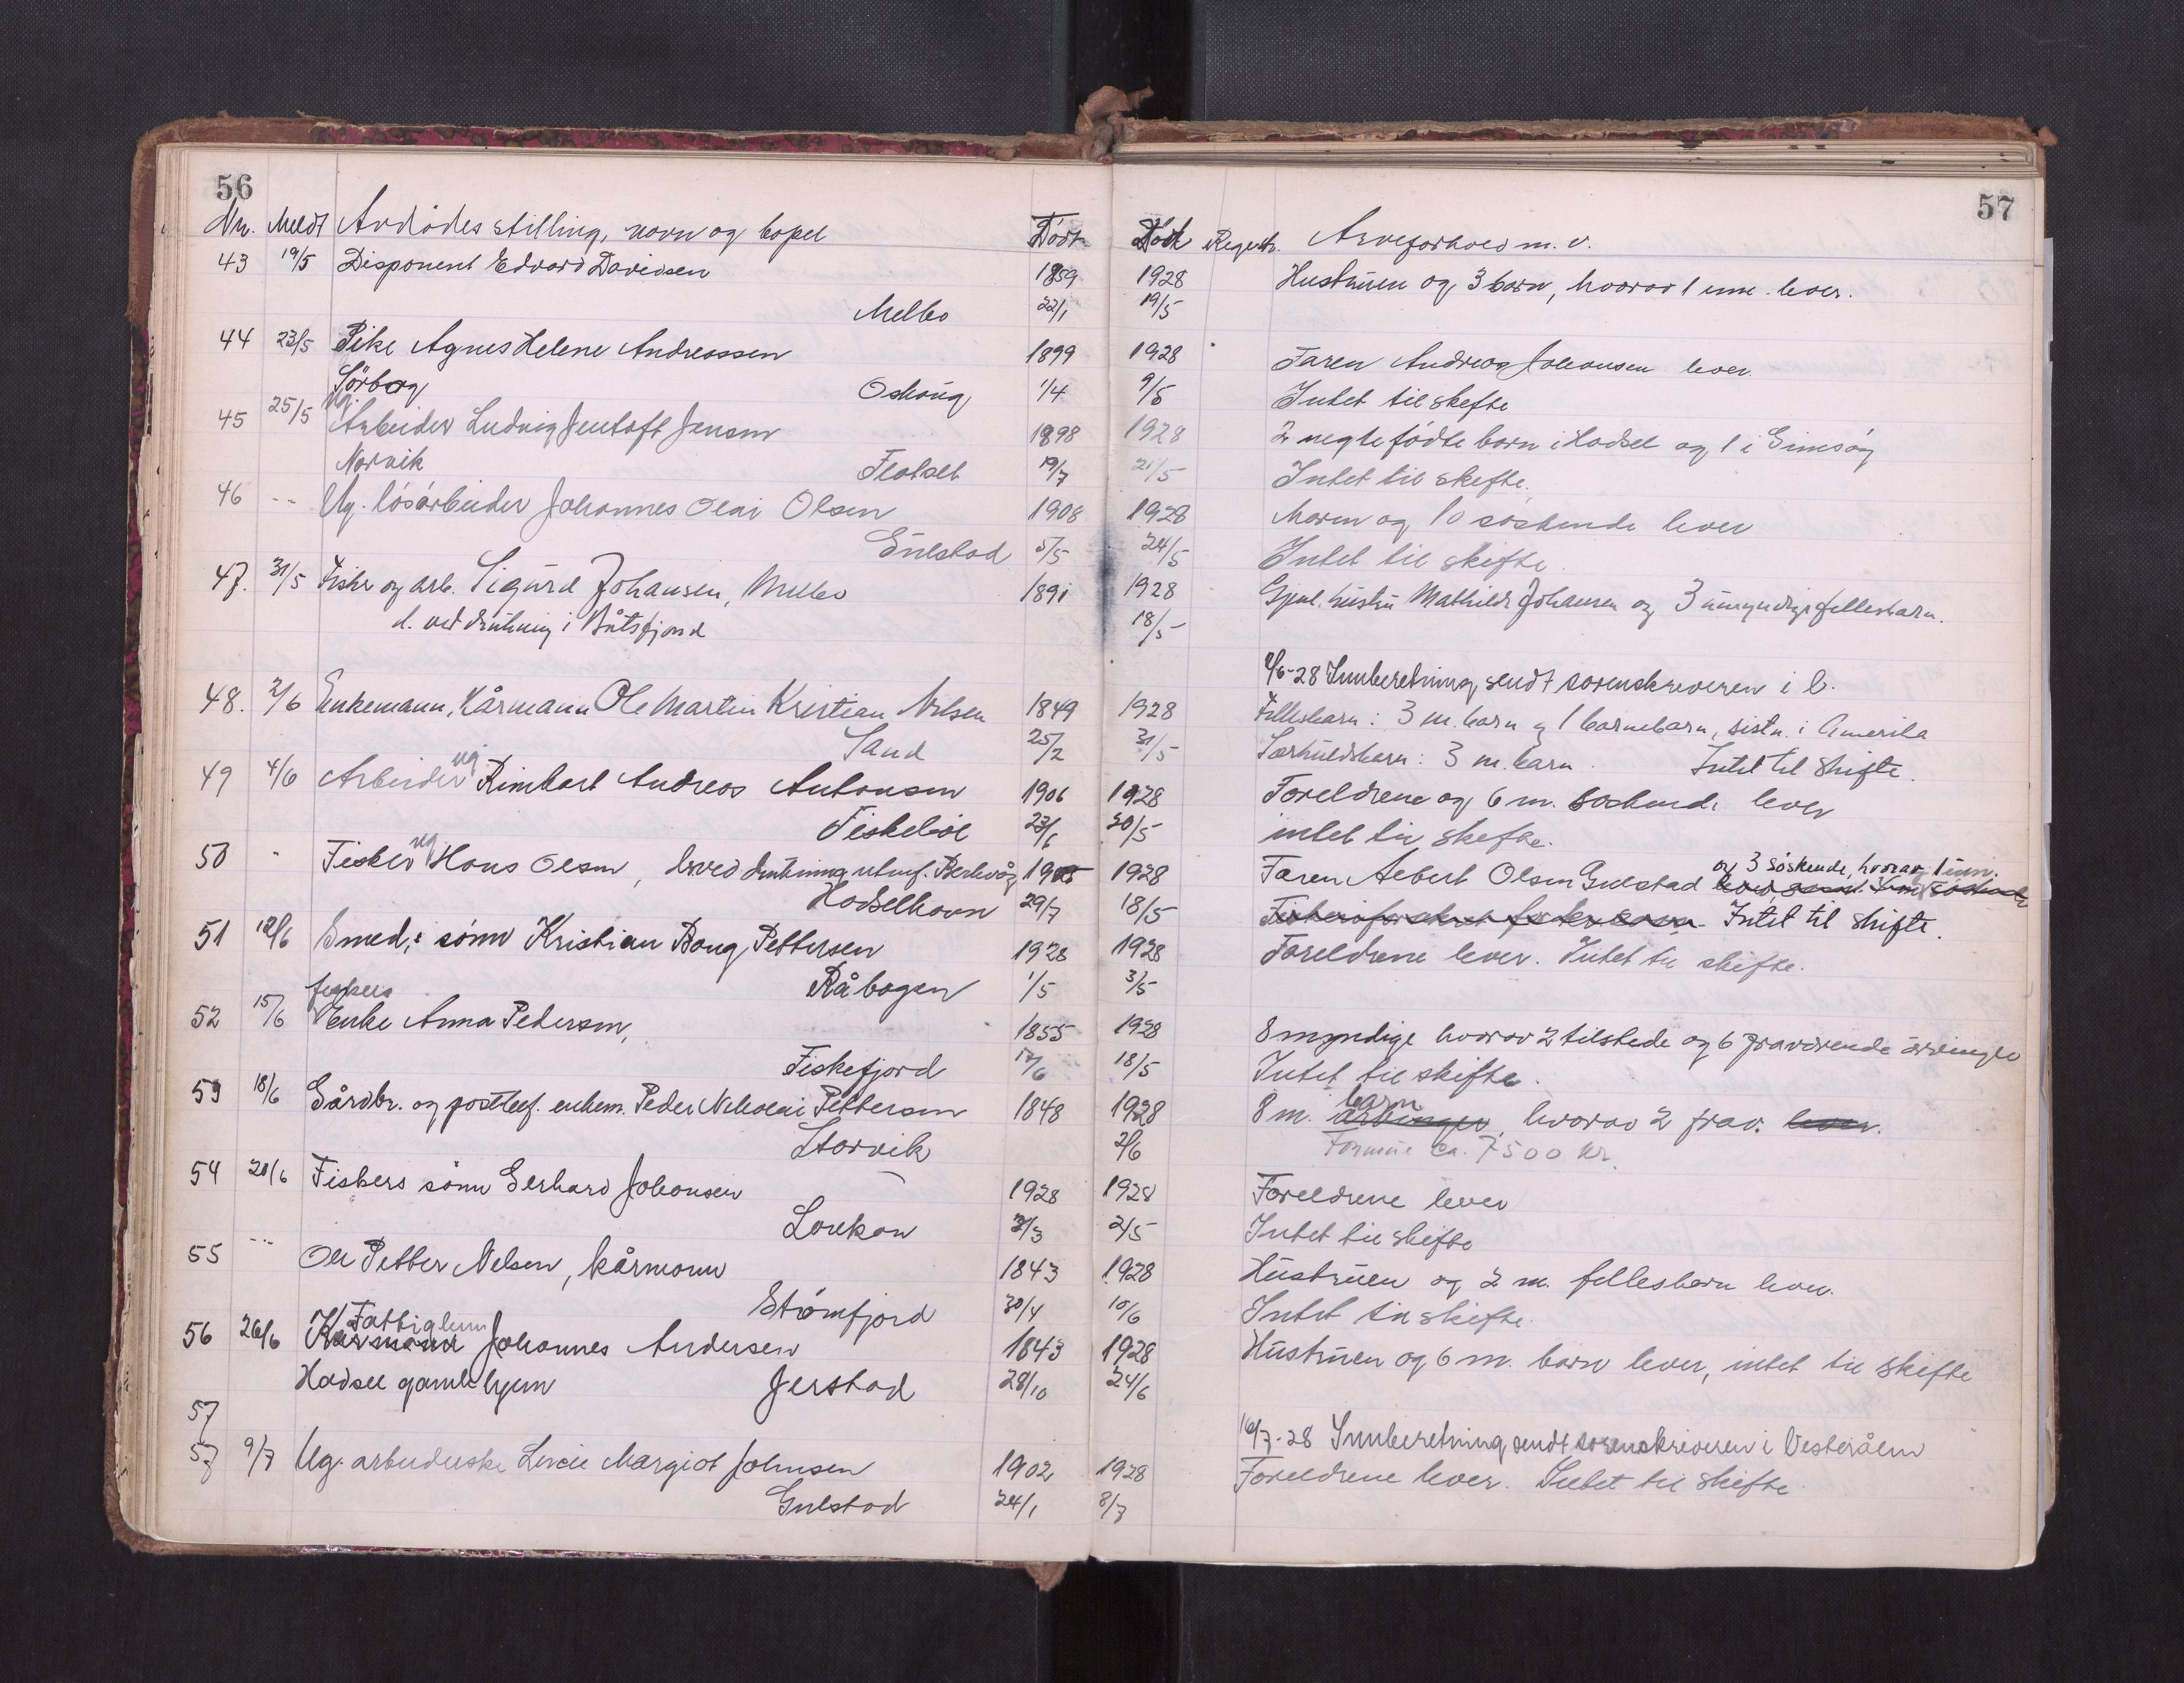 56
57
Nr. Meldt Avdødes stilling, navn og bopel Født Død Registr. Arveforhold m. v.
43 19/5 Disponent Edvard Davidsen 1859 1928 Hustruen og 3 barn, hvorav 1 lever.
Melbo 22/1 19/5
44 23/5 Pike Agnes Helene Andreassen 1899 1928 Faren Andreas Johansen lever
Sørborg 1/4 9/5 Intet til skifte
45 25/5 Ug. Arbeider Ludvig Jentoft Jensen 1898 1928 2 uegtefødte barn i Hadsel og 1 i Gimsøy
Narvik Flatset 19/7 21/5 Intet til skifte.
46 -- Ug. løsarbeider Johannes Olai Olsen 1908 1928 Moren og 10 søskende lever
Gulstad 5/5 24/5 Intet til skifte.
47. 31/5 Fisker og arb. Sigurd Johansen, Melbo 1891 1928 Gjenl. hustru Mathilde Johansen og 3 umyndige fellesbarn.
d. ved drukning i Båtsfjord 18/5
2/6-28 Innberetning sendt sorenskriveren i V.
48. 2/6 Enkemann, Kårmann Ole Martin Kristian Nilsen 1849 1928 Fellesbarn: 3 m. barn og 1 barnebarn, sistn. i Amerika
Sand 25/2 31/5 Særkullsbarn: 3 m. barn. Intet til skifte.
49 4/6 Arbeider ug Rimbart Andreas Antonsen 1906 1928 Foreldrene og 6 m. søskende lever
Fiskebøl 23/6 30/5 intet til skifte.
50 " Fisker ug Hans Olsen, ved drukning utenf. Berlevåg 1905 1928 Faren Albert Olsen Gulstad og 3 søskende, hvorav 1 um.
Hadselhavn 29/7 18/5 Intet til skifte.
51 12/6 Smed, sønn Kristian Boug Pettersen 1928 1928 Foreldrene lever. Intet til skifte.
Råbogen 1/5 3/5
52 15/6 Enke Anna Pedersen, 1855 1928 8 myndige hvorav 2 tilstede og 6 fraværende arvinger
Fiskefjord 17/6 18/5 Intet til skifte.
53 18/6 Gårdbr. og postleif. enkem. Peder Nikolai Pettersen 1848 1928 8 m. arvinger barn, hvorav 2 frav. lever.
Storvik 2/6 Formue ca. 7500 kr.
54 20/6 Fiskers sønn Gerhard Johansen 1928 1928 Foreldrene lever
Lorekan 31/3 2/5 Intet til skifte
55 --- Ole Petter Nelsen, kårmann 1843 1928 Hustruen og 2 m. fellesbarn lever.
Strømfjord 30/4 10/6 Intet til skifte.
56 26/6 Kårmand Fattiglem Johannes Andersen 1843 1928 Hustruen og 6 m. barn lever, intet til skifte
Hadsel gamlehjem Jerstad 28/10 24/6
57
16/7-28 Innberetning sendt sorenskriveren i Vesterålen
57 9/7 Ug. arbeiderske Lucie Margiot Johnsen 1902 1928 Foreldrene lever. Intet til skifte
Gulstad 24/1 8/7